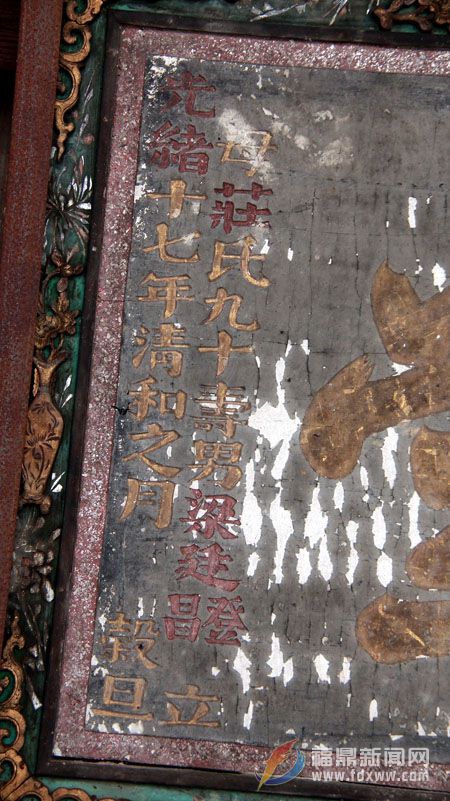 母莊氏九十壽男梁廷登昌立
光緒十七年清和之月穀旦
福鼎新闻网
www.fdxww.com